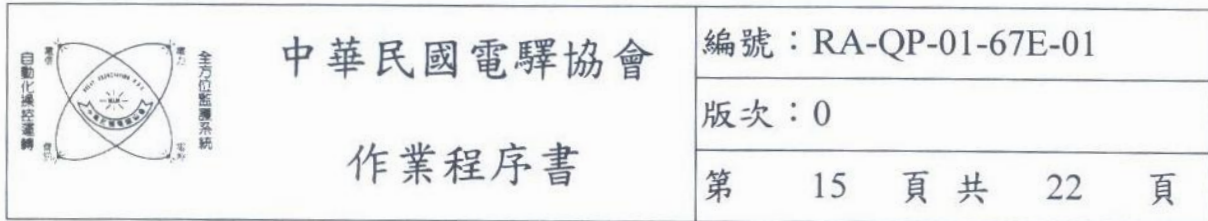 自動化操控運轉
全方位監護系統
中華民國電驛協會
作業程序書
編號：RA-QP-01-67E-01
版次：0
第 15 頁 共 22 頁